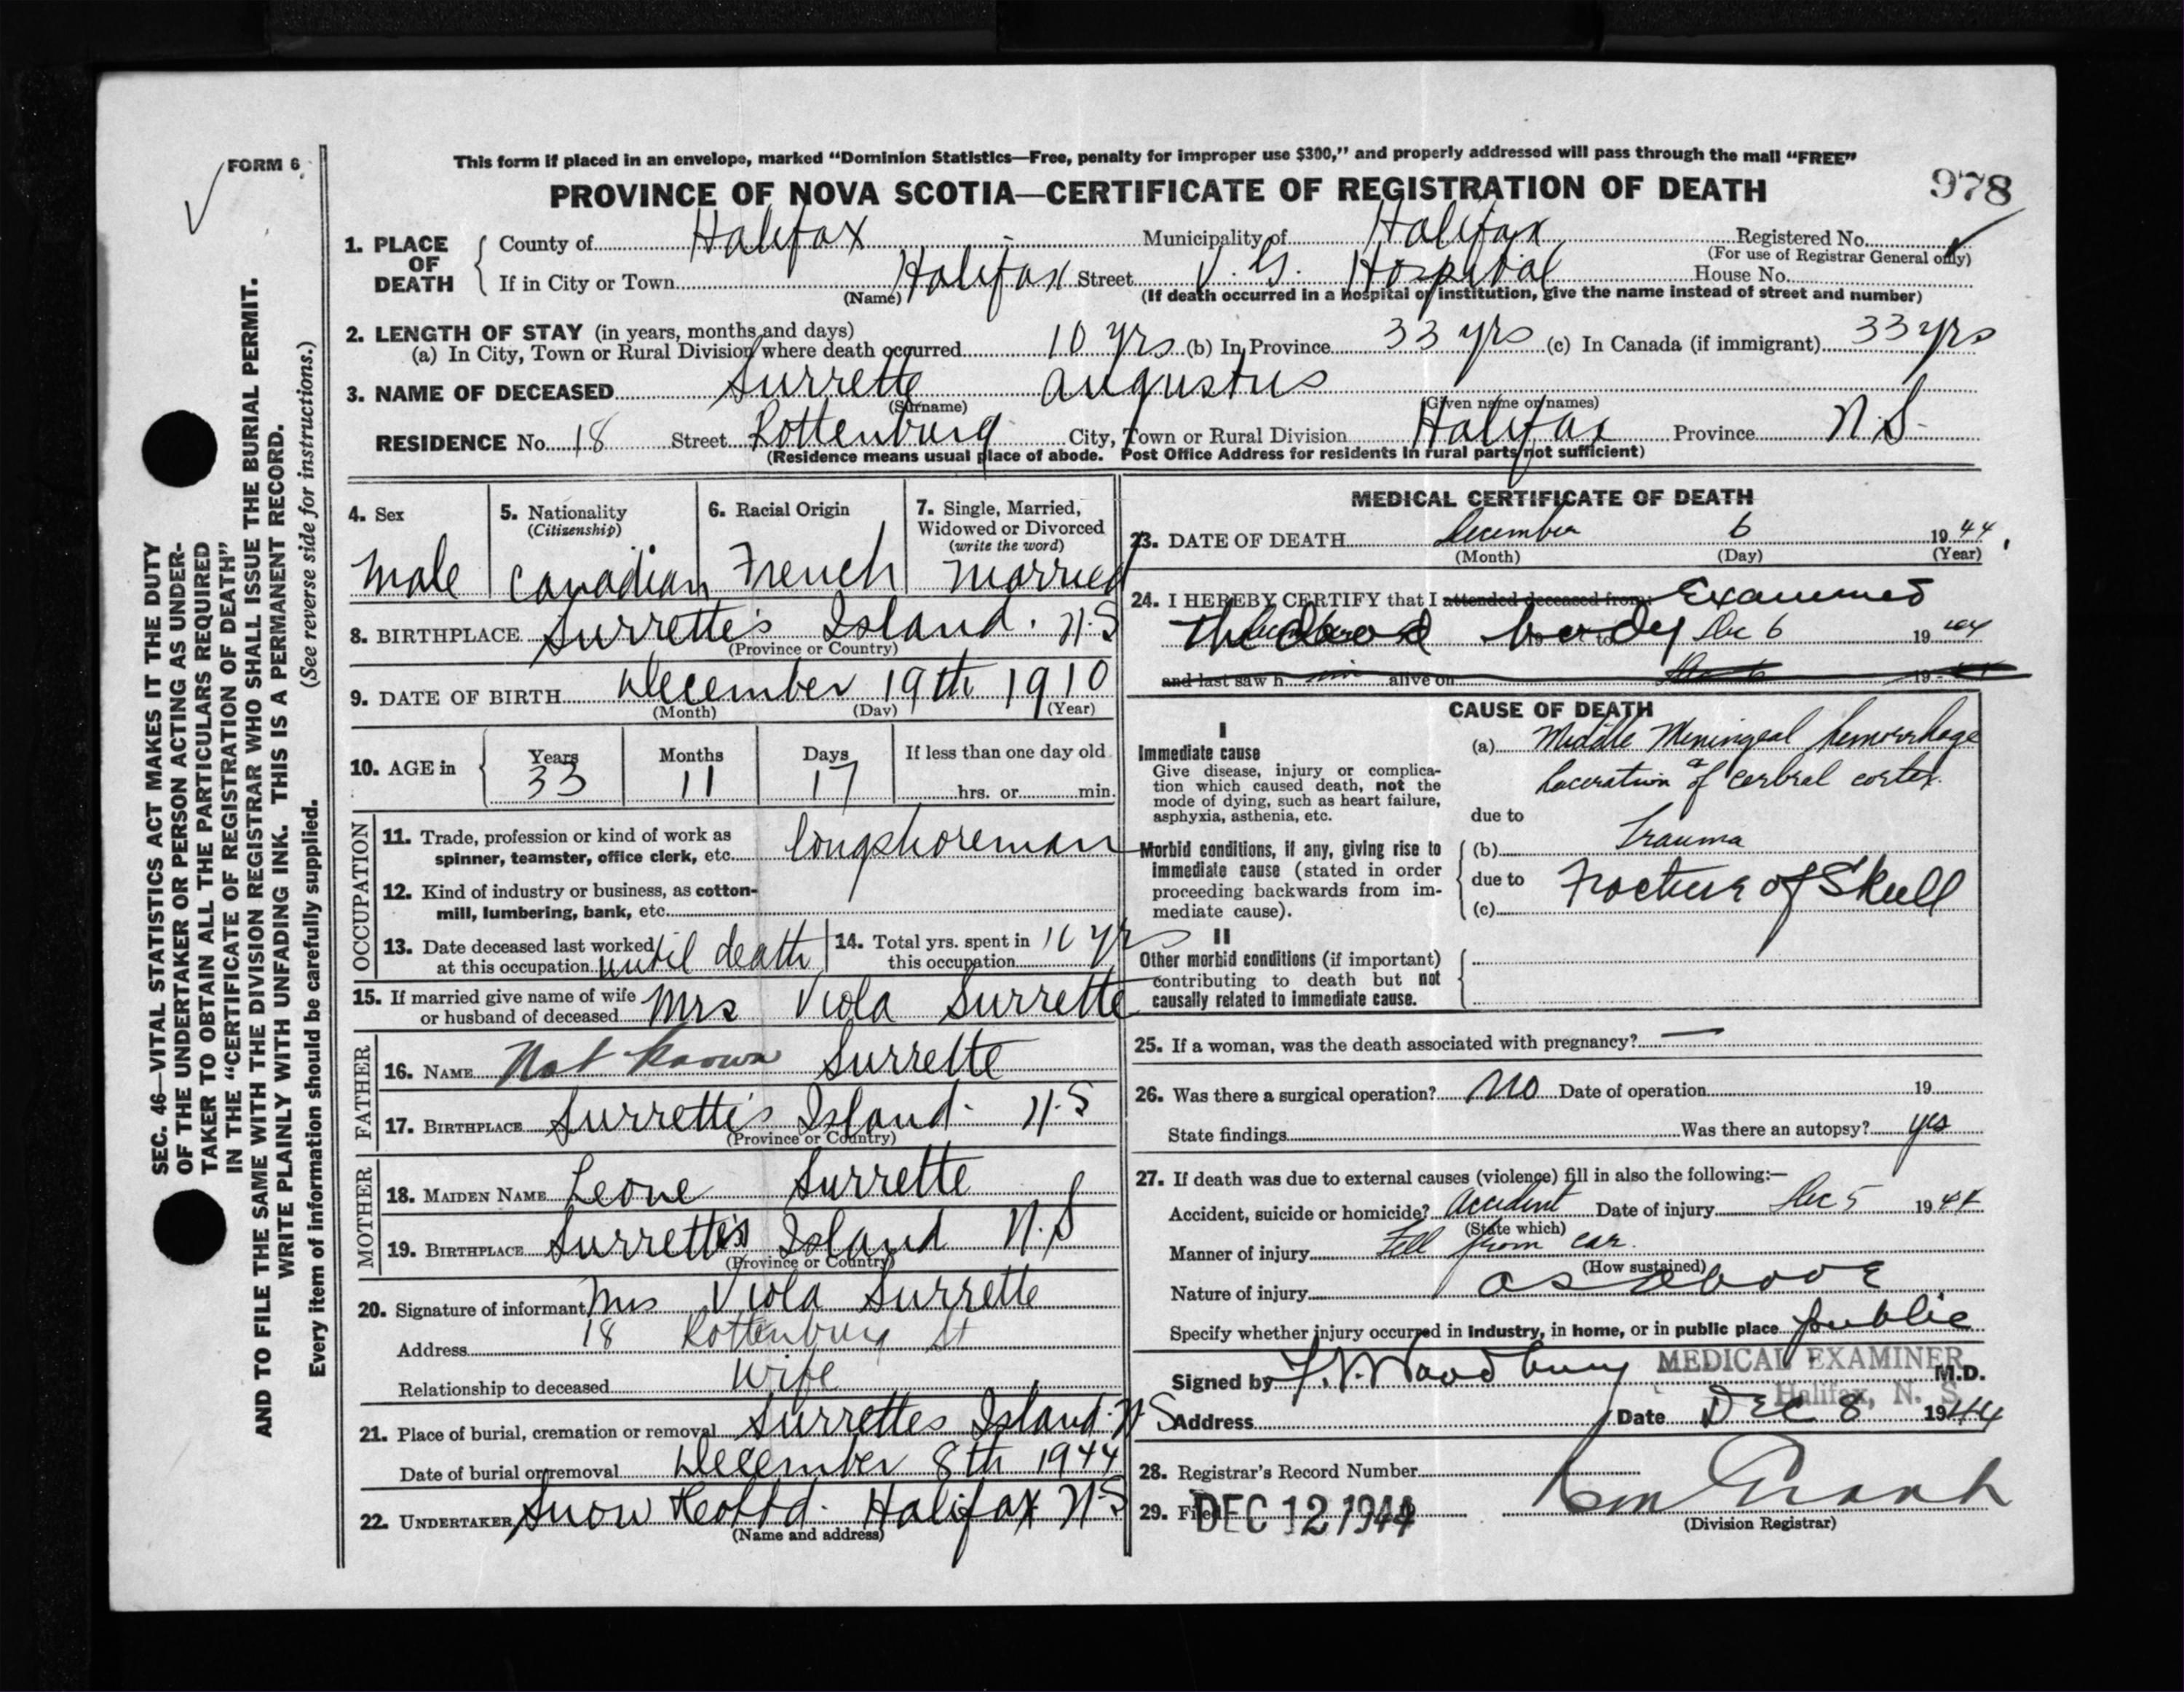 FORM 6
This form if placed in an envelope, marked “Dominion Statistics—Free, penalty for improper use $300,” and properly addressed will pass through the mail “FREE”
PROVINCE OF NOVA SCOTIA—CERTIFICATE OF REGISTRATION OF DEATH
978
1. PLACE OF DEATH
County of Halifax Municipality of Halifax Registered No.
(For use of Registrar General only)
If in City or Town Halifax Street V. G. Hospital House No.
(Name) (If death occurred in a hospital or institution, give the name instead of street and number)
2. LENGTH OF STAY (in years, months and days)
(a) In City, Town or Rural Division where death occurred 10 yrs (b) In Province 33 yrs (c) In Canada (if immigrant) 33 yrs
3. NAME OF DECEASED Surrette Augustus
(Surname) (Given name or names)
RESIDENCE No. 18 Street Rottenburg City, Town or Rural Division Halifax Province N.S.
(Residence means usual place of abode. Post Office Address for residents in rural parts not sufficient)
4. Sex
Male
5. Nationality
(Citizenship)
Canadian
6. Racial Origin
French
7. Single, Married,
Widowed or Divorced
(write the word)
Married
8. BIRTHPLACE Surrette's Island. N.S
(Province or Country)
9. DATE OF BIRTH December 19th 1910
(Month) (Day) (Year)
10. AGE in
Years Months Days If less than one day old
33 11 17 hrs. or min.
OCCUPATION
11. Trade, profession or kind of work as
spinner, teamster, office clerk, etc. longshoreman
12. Kind of industry or business, as cotton-
mill, lumbering, bank, etc.
13. Date deceased last worked
at this occupation until death
14. Total yrs. spent in
this occupation yrs
15. If married give name of wife
or husband of deceased Mrs Viola Surrette
FATHER
16. NAME Not known Surrette
17. BIRTHPLACE Surrette's Island. N.S
(Province or Country)
MOTHER
18. MAIDEN NAME Leone Surrette
19. BIRTHPLACE Surrette's Island N.S
(Province or Country)
20. Signature of informant Mrs Viola Surrette
Address 18 Rottenburg St
Relationship to deceased Wife
21. Place of burial, cremation or removal Surrettes Island. N.S
Date of burial or removal December 8th 1944
22. UNDERTAKER Snow & Co Ltd. Halifax N.S
(Name and address)
MEDICAL CERTIFICATE OF DEATH
23. DATE OF DEATH December 6 1944
(Month) (Day) (Year)
24. I HEREBY CERTIFY that I attended deceased from: Examined
the dead body to Dec 6 1944
and last saw h im alive on 19
CAUSE OF DEATH
I
Immediate cause
Give disease, injury or complica-
tion which caused death, not the
mode of dying, such as heart failure,
asphyxia, asthenia, etc.
(a) Middle Meningeal hemorrhage
Laceration of cerbral cortex.
due to
Morbid conditions, if any, giving rise to
immediate cause (stated in order
proceeding backwards from im-
mediate cause).
(b) Trauma
due to
(c) Fracture of Skull
II
Other morbid conditions (if important)
contributing to death but not
causally related to immediate cause.
25. If a woman, was the death associated with pregnancy? —
26. Was there a surgical operation? No Date of operation 19
State findings Was there an autopsy? yes
27. If death was due to external causes (violence) fill in also the following:—
Accident, suicide or homicide? Accident Date of injury Dec 5 1944
(State which)
Manner of injury Fell from car.
(How sustained)
Nature of injury as above
Specify whether injury occurred in industry, in home, or in public place public
MEDICAL EXAMINER
Signed by Woodbury M.D.
Halifax, N. S.
Address Date Dec 8 1944
28. Registrar's Record Number
29. Filed DEC 12 1944
(Division Registrar)
SEC. 46—VITAL STATISTICS ACT MAKES IT THE DUTY
OF THE UNDERTAKER OR PERSON ACTING AS UNDER-
TAKER TO OBTAIN ALL THE PARTICULARS REQUIRED
IN THE “CERTIFICATE OF REGISTRATION OF DEATH”
AND TO FILE THE SAME WITH THE DIVISION REGISTRAR WHO SHALL ISSUE THE BURIAL PERMIT.
WRITE PLAINLY WITH UNFADING INK. THIS IS A PERMANENT RECORD.
Every item of information should be carefully supplied. (See reverse side for instructions.)